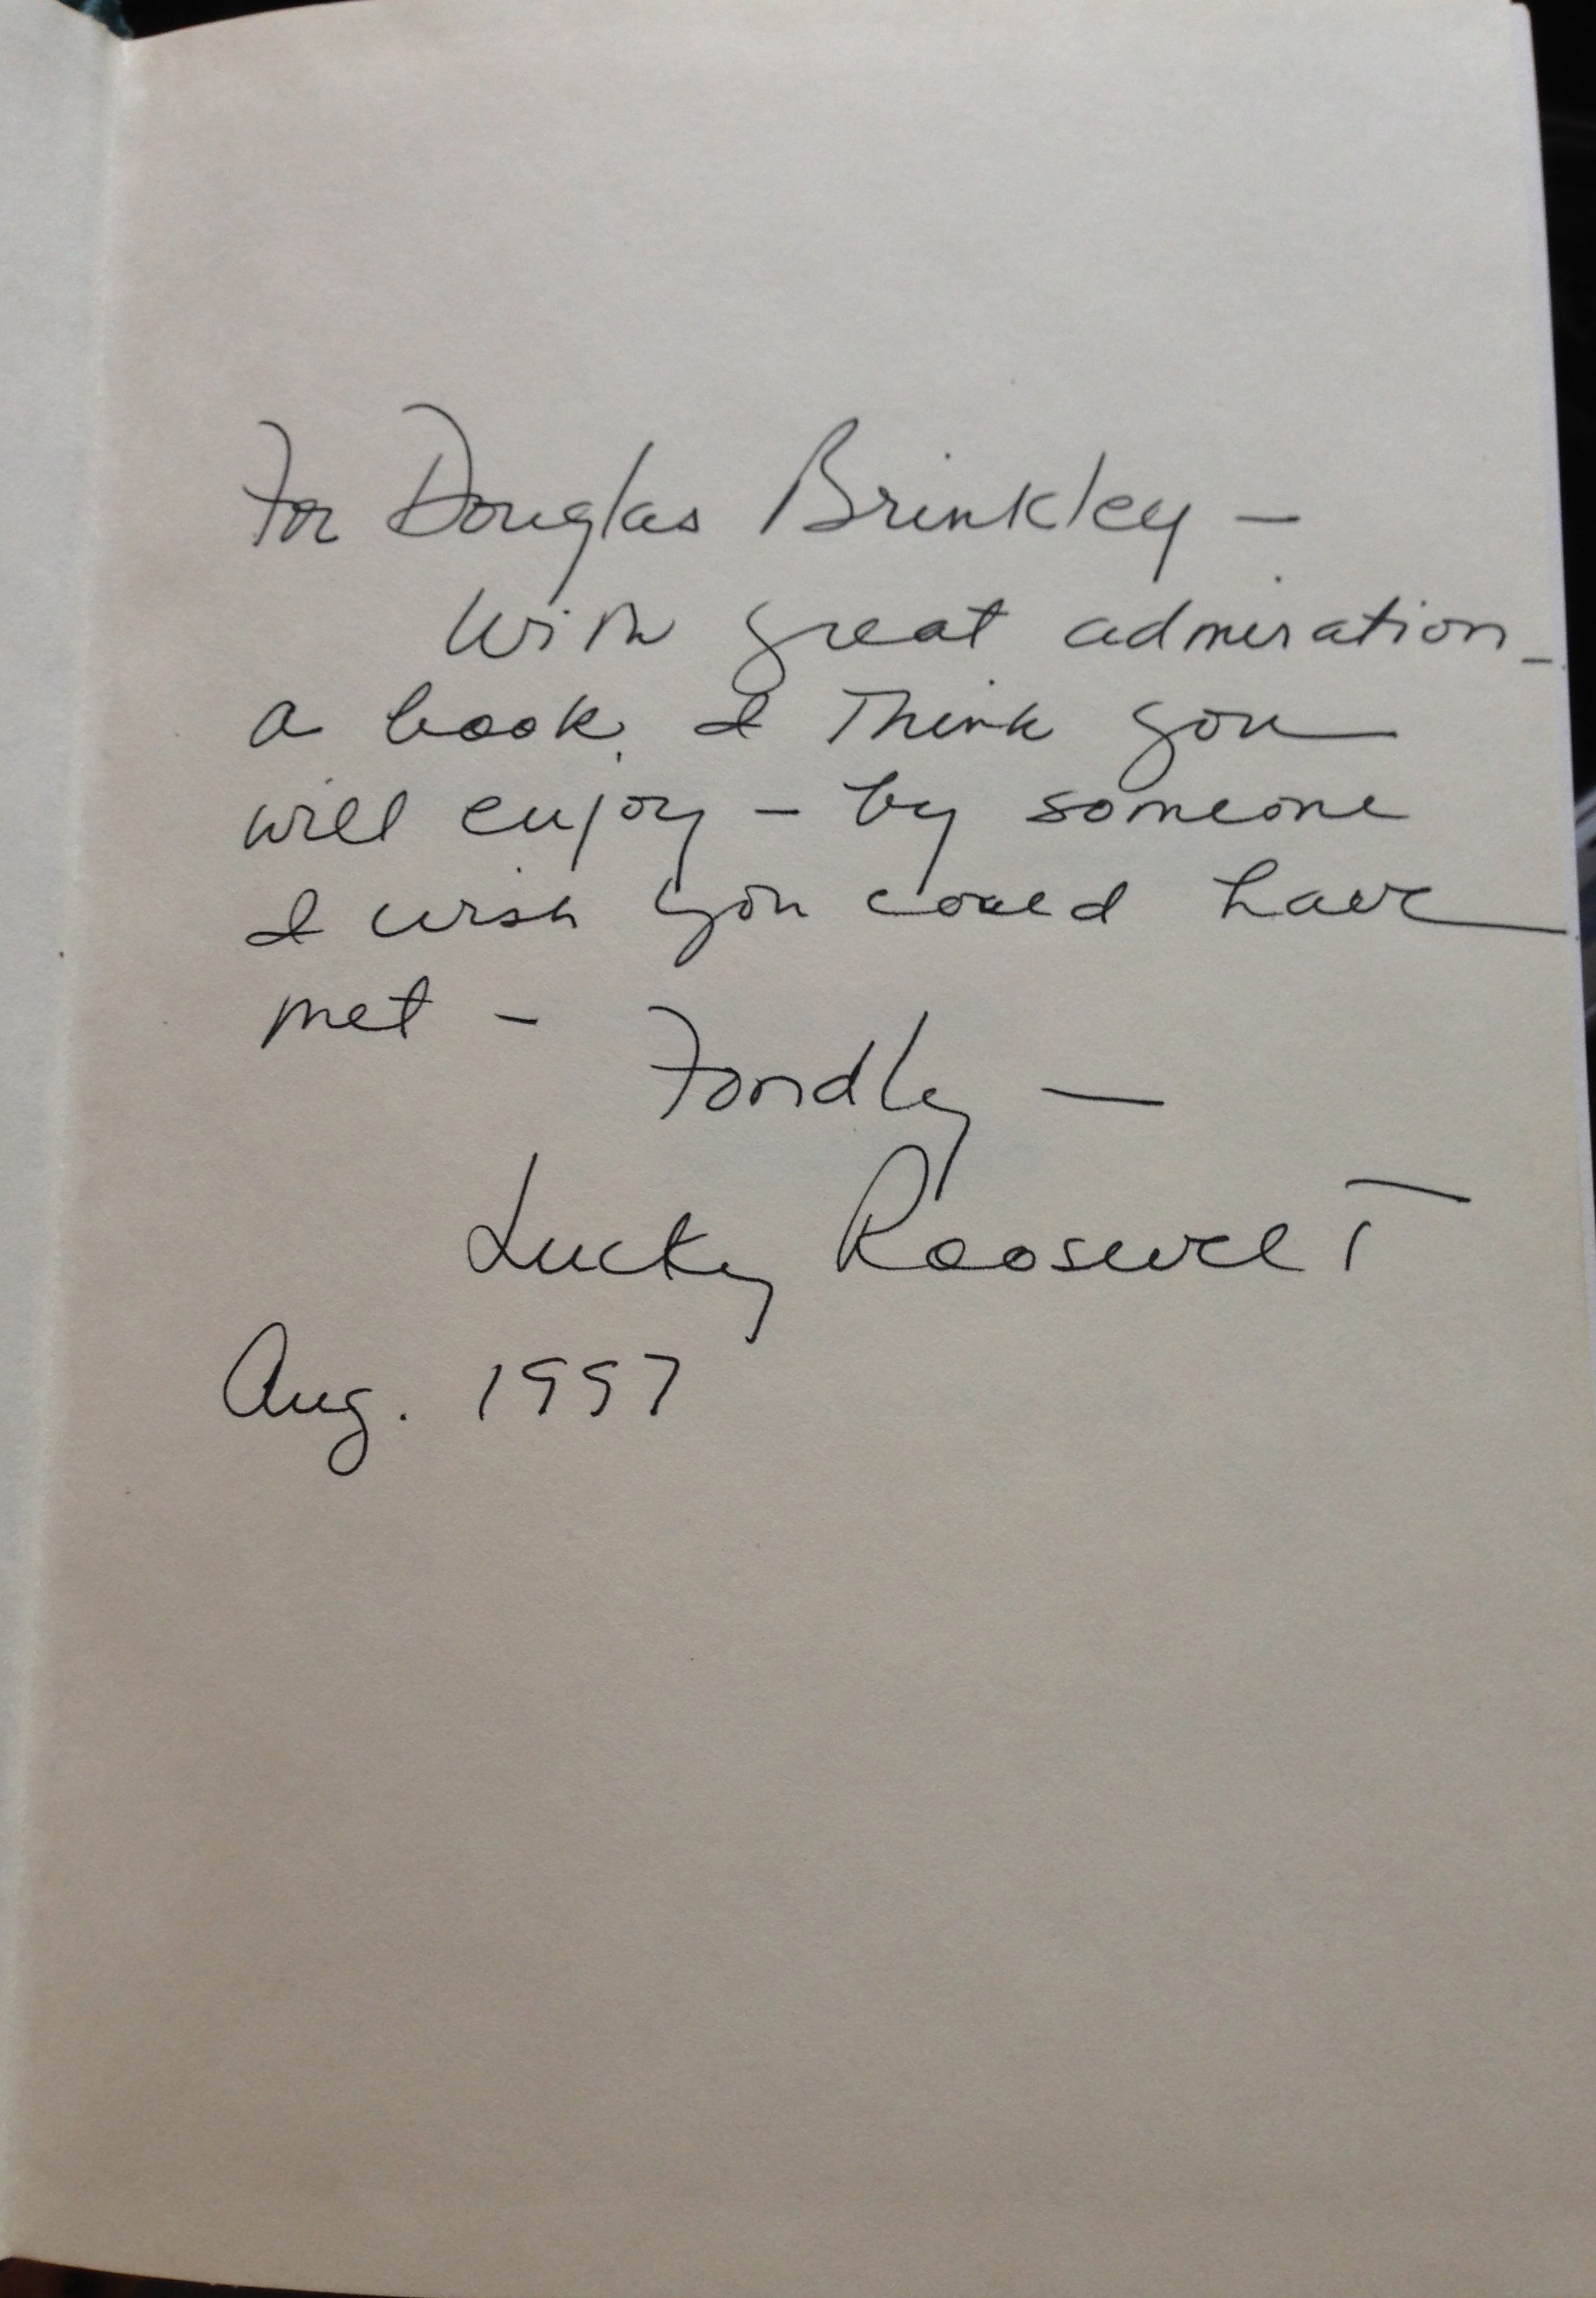 For Douglas Brinkley —
With great admiration –
a book I think you
will enjoy – by someone
I wish you could have
met –
Fondly —
Lucky Roosevelt
Aug. 1997